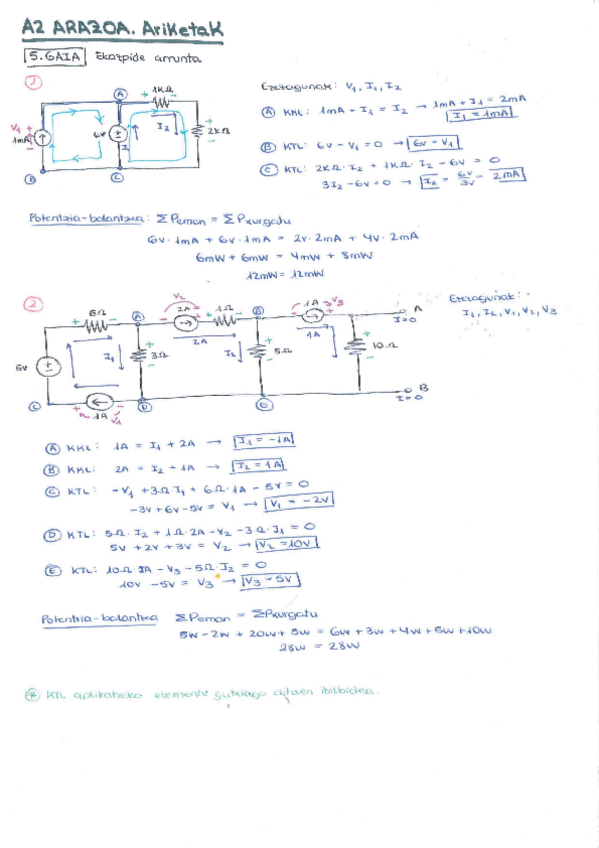 A2 ARAZOA. Ariketak
5. GAIA Ekorpide arrunta
1
Ezezagunak: V1, I1, I2
A
1KΩ
+ -
V1
1mA
6V
I1
I2
2KΩ
B
C
A KKL: 1mA + I1 = I2 → 1mA + I1 = 2mA
I1 = 1mA
B KTL: 6V - V1 = 0 → 6V = V1
C KTL: 2KΩ · I2 + 1KΩ · I2 - 6V = 0
3I2 - 6V = 0 → I2 = 6V/3V = 2mA
Potentzia-balantzea: ΣPeman = ΣPxurgatu
6V · 1mA + 6V · 1mA = 2V · 2mA + 4V · 2mA
6mW + 6mW = 4mW + 8mW
12mW = 12mW
2
Ezezagunak:
I1, I2, V1, V2, V3
6Ω
A
V2
2A
1Ω
B
1A
V3
A
I=0
5V
I1
3Ω
2A
I2
5Ω
1A
10Ω
C
1A
V1
D
E
B
I=0
A KKL: 1A = I1 + 2A → I1 = -1A
B KKL: 2A = I2 + 1A → I2 = 1A
C KTL: -V1 + 3Ω · I1 + 6Ω · 1A - 5V = 0
-3V + 6V - 5V = V1 → V1 = -2V
D KTL: 5Ω · I2 + 1Ω · 2A - V2 - 3Ω · I1 = 0
5V + 2V + 3V = V2 → V2 = 10V
E KTL: 10Ω · 1A - V3 - 5Ω · I2 = 0
10V - 5V = V3 → V3 = 5V
Potentzia-balantzea ΣPeman = ΣPxurgatu
5W - 2W + 20W + 5W = 6W + 3W + 4W + 5W + 10W
28W = 28W
* KTL aplikatzeko elementu gutxiago dituen ibilbidea.